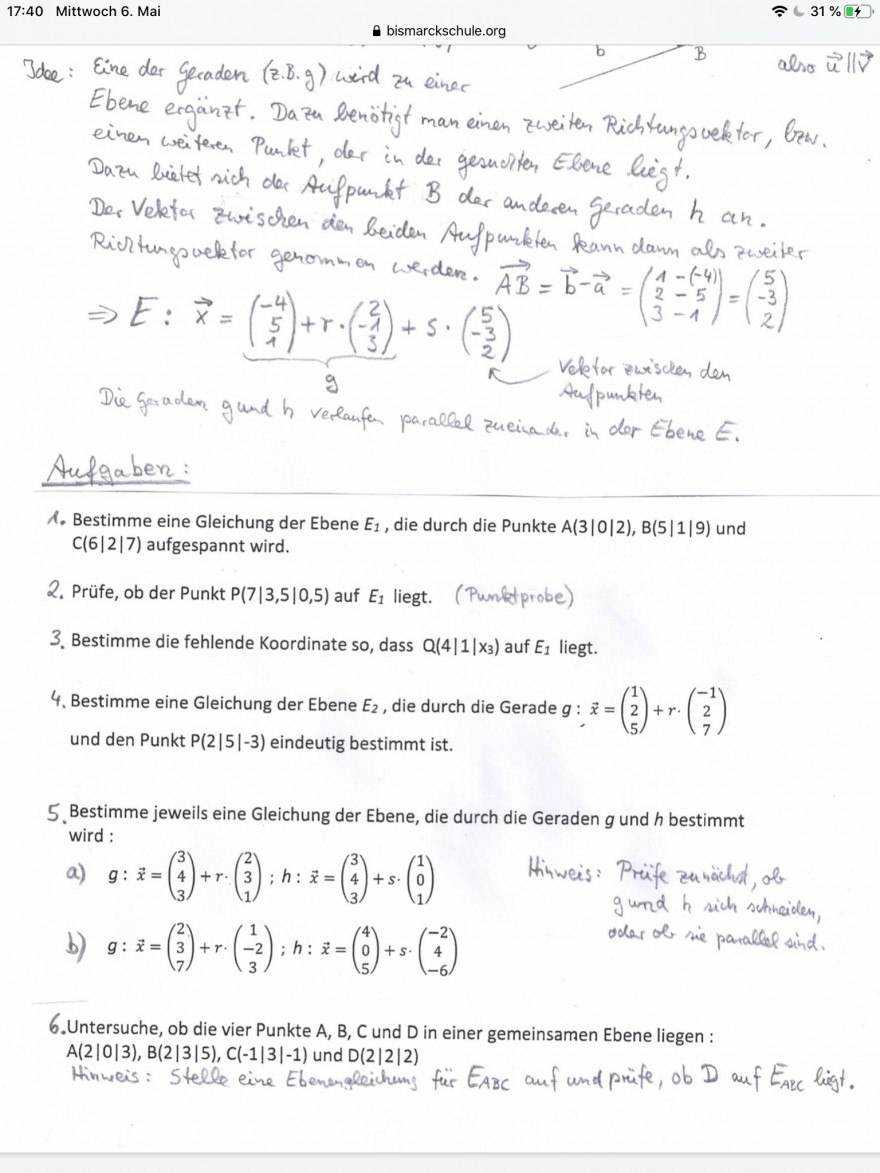 17:40 Mittwoch 6. Mai 31 %
bismarckschule.org
b B also u⃗ || v⃗
Idee: Eine der Geraden (z.B. g) wird zu einer
Ebene ergänzt. Dazu benötigt man einen zweiten Richtungsvektor, bzw.
einen weiteren Punkt, der in der gesuchten Ebene liegt.
Dazu bietet sich der Aufpunkt B der anderen Geraden h an.
Der Vektor zwischen den beiden Aufpunkten kann dann als zweiter
Richtungsvektor genommen werden. AB⃗ = b⃗ - a⃗ = (1 - (-4) / 2 - 5 / 3 - 1) = (5 / -3 / 2)
⇒ E: x⃗ = (-4 / 5 / 1) + r · (2 / -1 / 3) + s · (5 / -3 / 2)
g
Vektor zwischen den
Aufpunkten
Die Geraden g und h verlaufen parallel zueinander in der Ebene E.
Aufgaben:
1. Bestimme eine Gleichung der Ebene E₁ , die durch die Punkte A(3|0|2), B(5|1|9) und
C(6|2|7) aufgespannt wird.
2. Prüfe, ob der Punkt P(7|3,5|0,5) auf E₁ liegt. (Punktprobe)
3. Bestimme die fehlende Koordinate so, dass Q(4|1|x₃) auf E₁ liegt.
4. Bestimme eine Gleichung der Ebene E₂ , die durch die Gerade g : x⃗ = (1 / 2 / 5) + r· (-1 / 2 / 7)
und den Punkt P(2|5|-3) eindeutig bestimmt ist.
5. Bestimme jeweils eine Gleichung der Ebene, die durch die Geraden g und h bestimmt
wird :
a) g : x⃗ = (3 / 4 / 3) + r· (2 / 3 / 1) ; h : x⃗ = (3 / 4 / 3) + s· (1 / 0 / 1)
Hinweis: Prüfe zunächst, ob
g und h sich schneiden,
oder ob sie parallel sind.
b) g : x⃗ = (2 / 3 / 7) + r· (1 / -2 / 3) ; h : x⃗ = (4 / 0 / 5) + s· (-2 / 4 / -6)
6. Untersuche, ob die vier Punkte A, B, C und D in einer gemeinsamen Ebene liegen :
A(2|0|3), B(2|3|5), C(-1|3|-1) und D(2|2|2)
Hinweis: Stelle eine Ebenengleichung für E_ABC auf und prüfe, ob D auf E_ABC liegt.